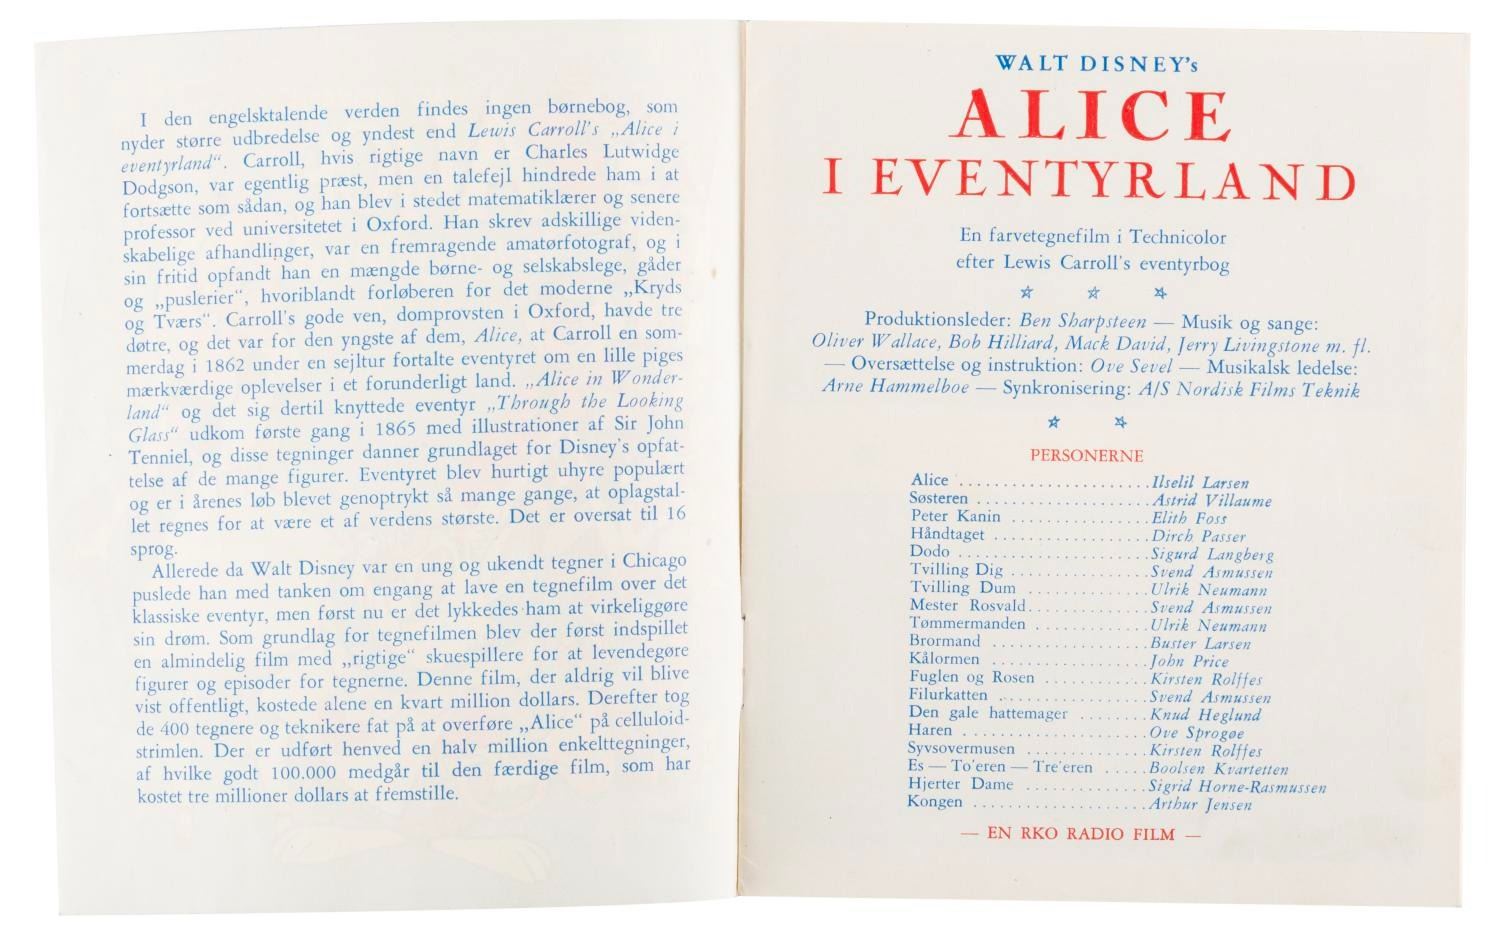 I den engelsktalende verden findes ingen børnebog, som
nyder større udbredelse og yndest end Lewis Carroll's „Alice i
eventyrland“. Carroll, hvis rigtige navn er Charles Lutwidge
Dodgson, var egentlig præst, men en talefejl hindrede ham i at
fortsætte som sådan, og han blev i stedet matematiklærer og senere
professor ved universitetet i Oxford. Han skrev adskillige viden-
skabelige afhandlinger, var en fremragende amatørfotograf, og i
sin fritid opfandt han en mængde børne- og selskabslege, gåder
og „puslerier“, hvoriblandt forløberen for det moderne „Kryds
og Tværs“. Carroll's gode ven, domprovsten i Oxford, havde tre
døtre, og det var for den yngste af dem, Alice, at Carroll en som-
merdag i 1862 under en sejltur fortalte eventyret om en lille piges
mærkværdige oplevelser i et forunderligt land. „Alice in Wonder-
land“ og det sig dertil knyttede eventyr „Through the Looking
Glass“ udkom første gang i 1865 med illustrationer af Sir John
Tenniel, og disse tegninger danner grundlaget for Disney's opfat-
telse af de mange figurer. Eventyret blev hurtigt uhyre populært
og er i årenes løb blevet genoptrykt så mange gange, at oplagstal-
let regnes for at være et af verdens største. Det er oversat til 16
sprog.
Allerede da Walt Disney var en ung og ukendt tegner i Chicago
puslede han med tanken om engang at lave en tegnefilm over det
klassiske eventyr, men først nu er det lykkedes ham at virkeliggøre
sin drøm. Som grundlag for tegnefilmen blev der først indspillet
en almindelig film med „rigtige“ skuespillere for at levendegøre
figurer og episoder for tegnerne. Denne film, der aldrig vil blive
vist offentligt, kostede alene en kvart million dollars. Derefter tog
de 400 tegnere og teknikere fat på at overføre „Alice“ på celluloid-
strimlen. Der er udført henved en halv million enkelttegninger,
af hvilke godt 100.000 medgår til den færdige film, som har
kostet tre millioner dollars at fremstille.
WALT DISNEY's
ALICE
I EVENTYRLAND
En farvetegnefilm i Technicolor
efter Lewis Carroll's eventyrbog
Produktionsleder: Ben Sharpsteen — Musik og sange:
Oliver Wallace, Bob Hilliard, Mack David, Jerry Livingstone m. fl.
— Oversættelse og instruktion: Ove Sevel — Musikalsk ledelse:
Arne Hammelboe — Synkronisering: A/S Nordisk Films Teknik
PERSONERNE
Alice ..................... Ilselil Larsen
Søsteren ................... Astrid Villaume
Peter Kanin ................ Elith Foss
Håndtaget .................. Dirch Passer
Dodo ...................... Sigurd Langberg
Tvilling Dig ................ Svend Asmussen
Tvilling Dum ............... Ulrik Neumann
Mester Rosvald .............. Svend Asmussen
Tømmermanden ............. Ulrik Neumann
Brormand ................... Buster Larsen
Kålormen .................. John Price
Fuglen og Rosen ............ Kirsten Rolffes
Filurkatten ................. Svend Asmussen
Den gale hattemager ........ Knud Heglund
Haren ..................... Ove Sprogøe
Syvsovermusen .............. Kirsten Rolffes
Es — To'eren — Tre'eren ..... Boolsen Kvartetten
Hjerter Dame .............. Sigrid Horne-Rasmussen
Kongen .................... Arthur Jensen
— EN RKO RADIO FILM —